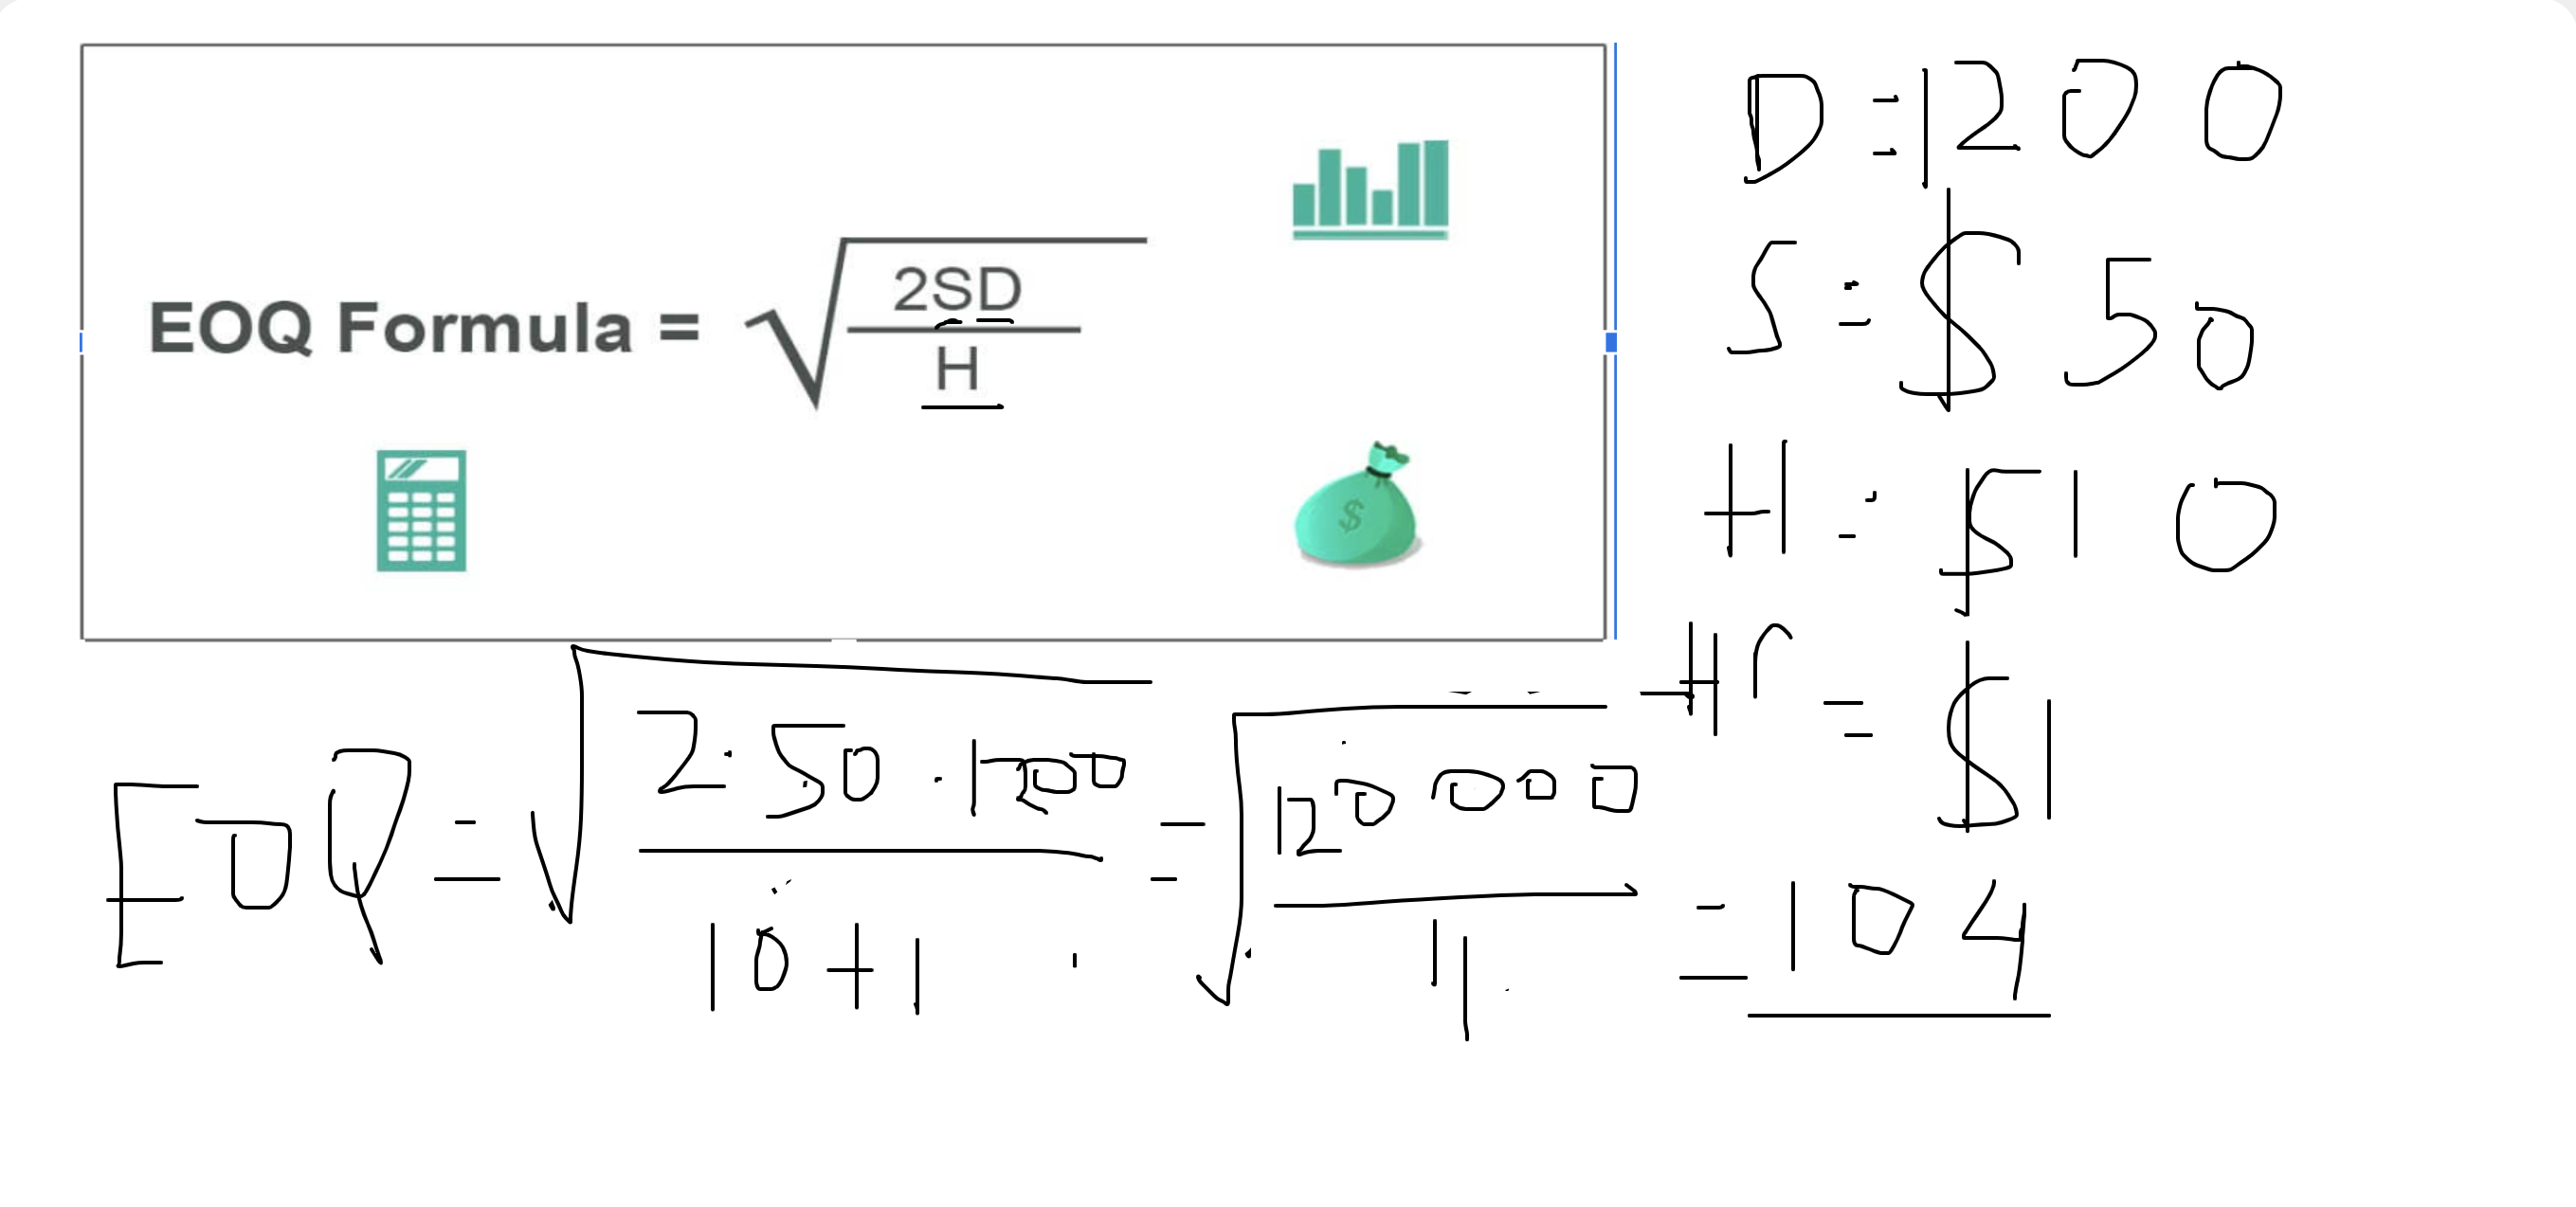 EOQ Formula = √ 2SD
H
$
D = 1200
S = $ 50
H = $10
Hr = $1
EOQ = √ 2·50·1200 = √ 120000
10+1 11
= 104